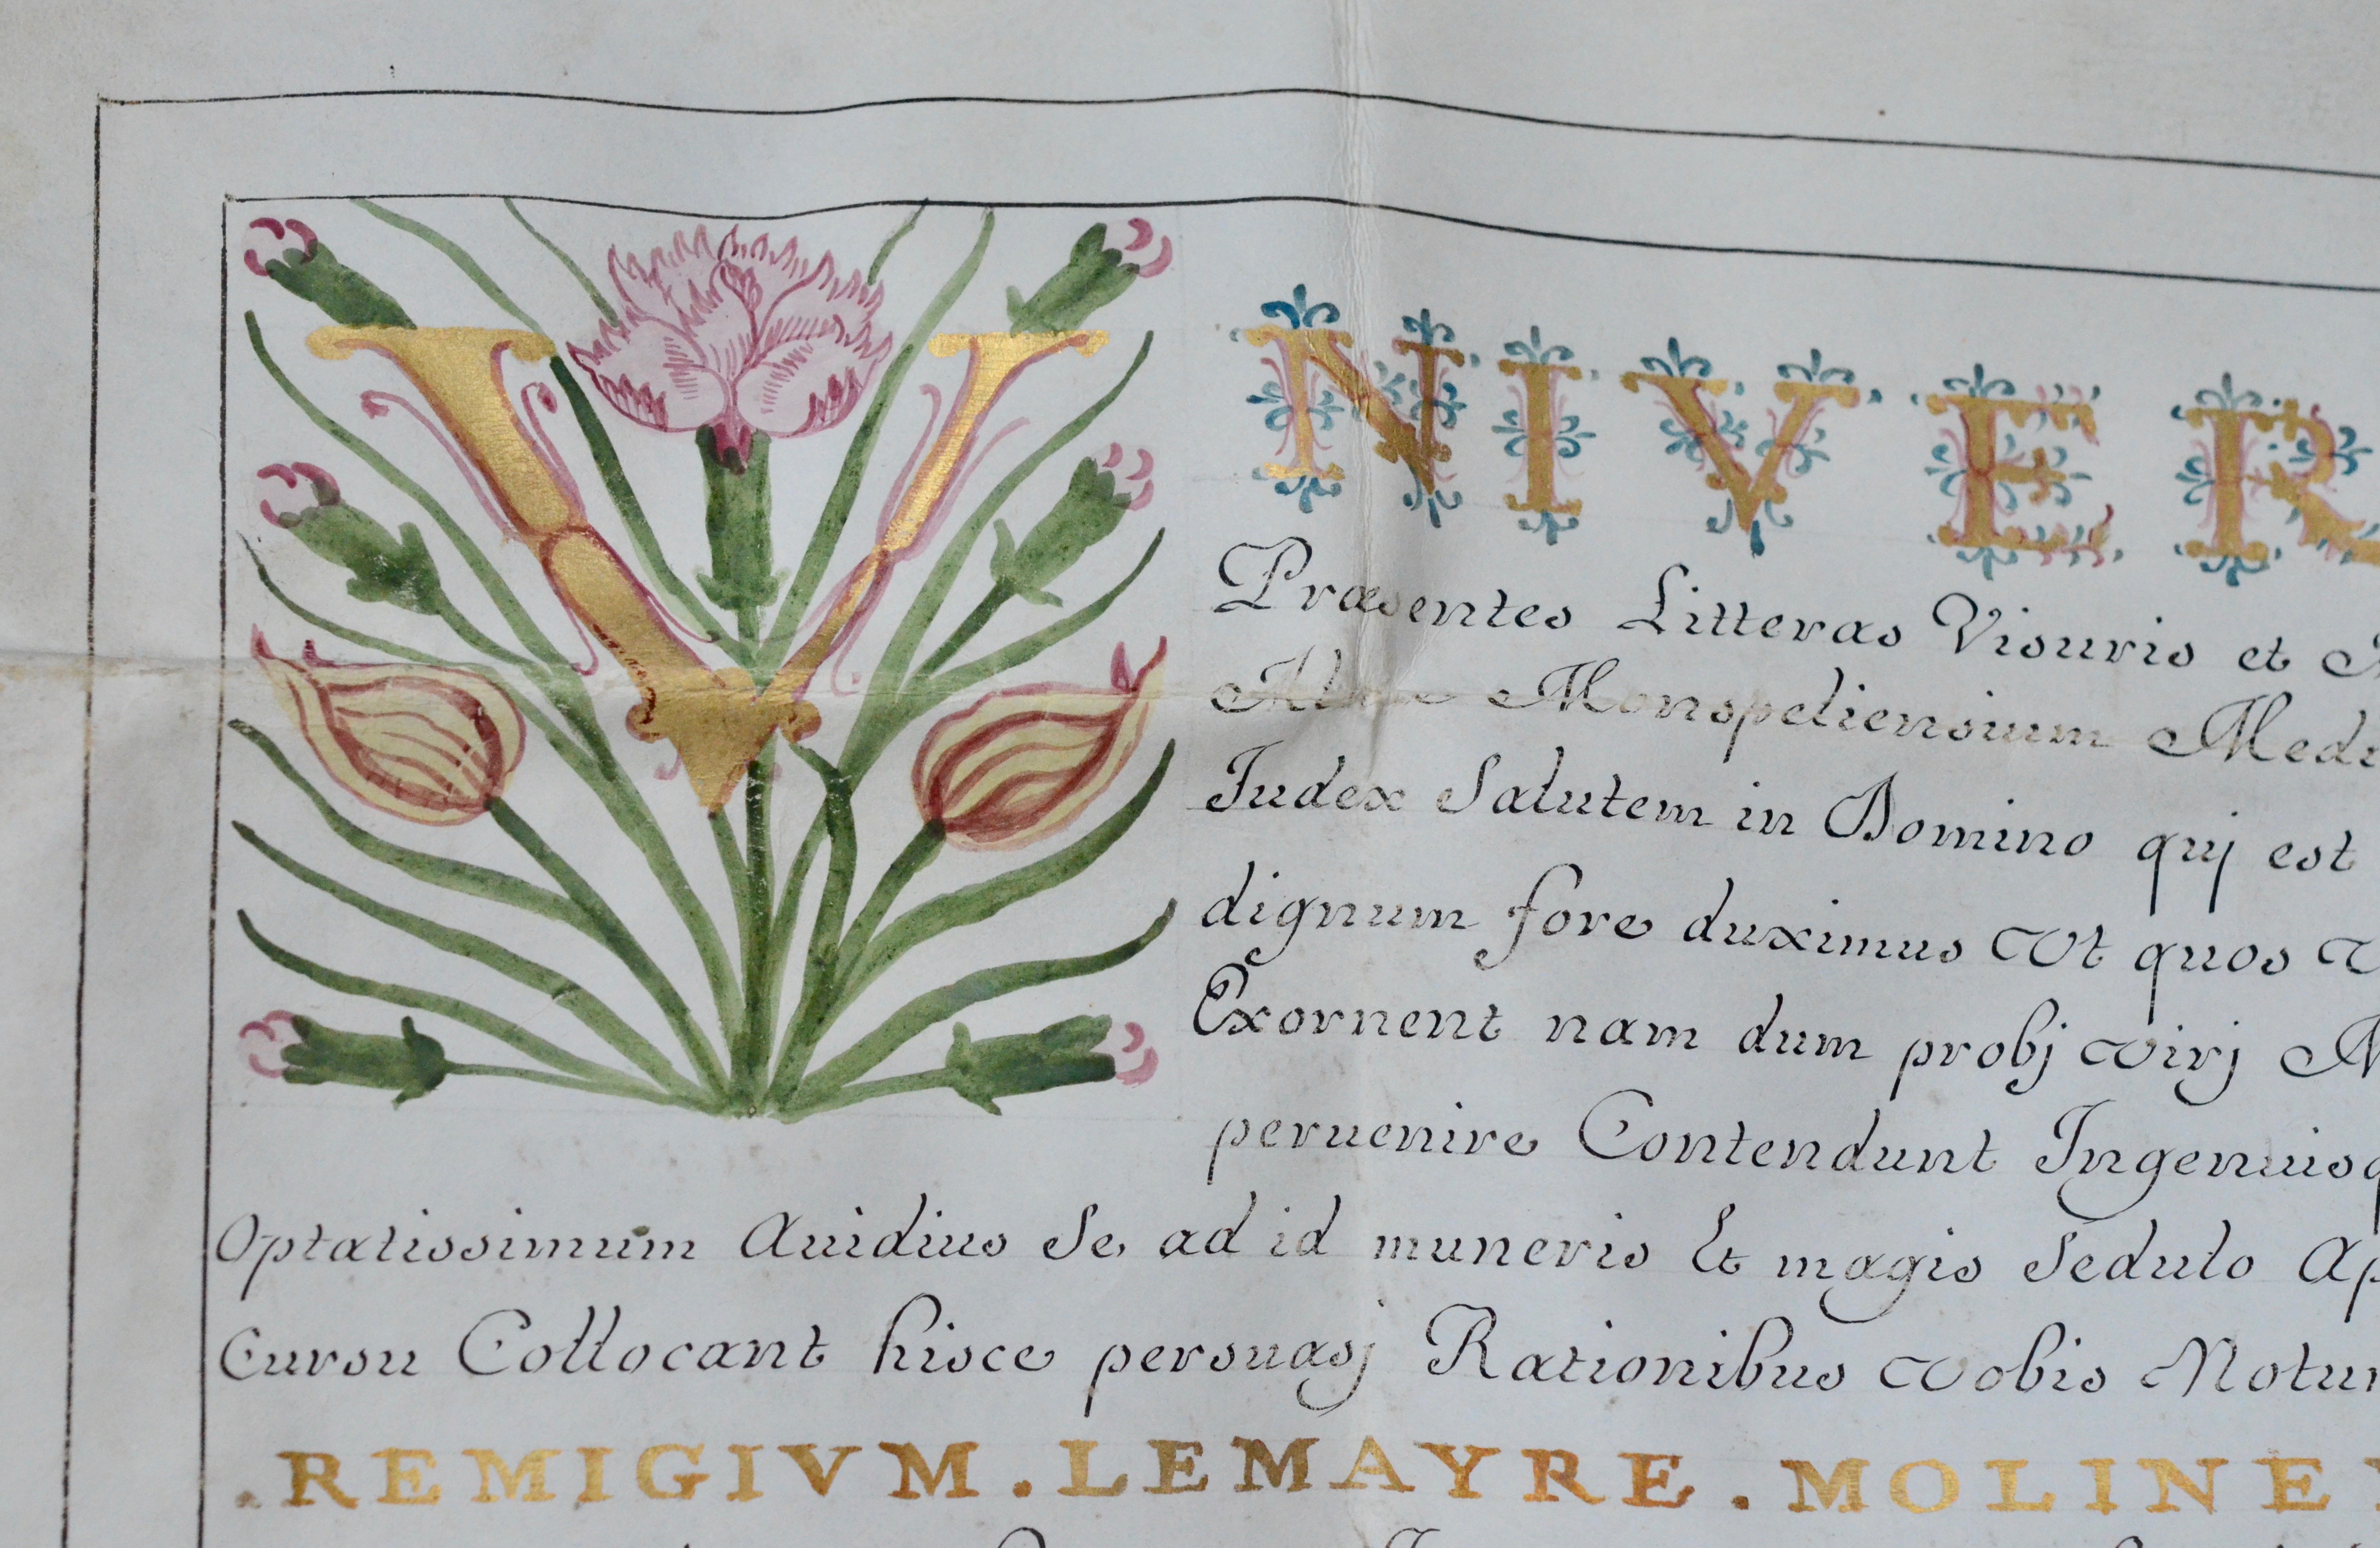 VNIVER
Præsentes Litteras Visuris et
Almæ Monspeliensium Medi
Iudex Salutem in Domino quj est
dignum fore duximus Vt quos
Exornent nam dum probj virj
peruenire Contendunt Ingenuisq
Optatissimum Auidius Se ad id muneris Et magis Sedulo Ap
Cursu Collocant hisce persuasj Rationibus vobis Notu
.REMIGIVM.LEMAYRE.MOLINE